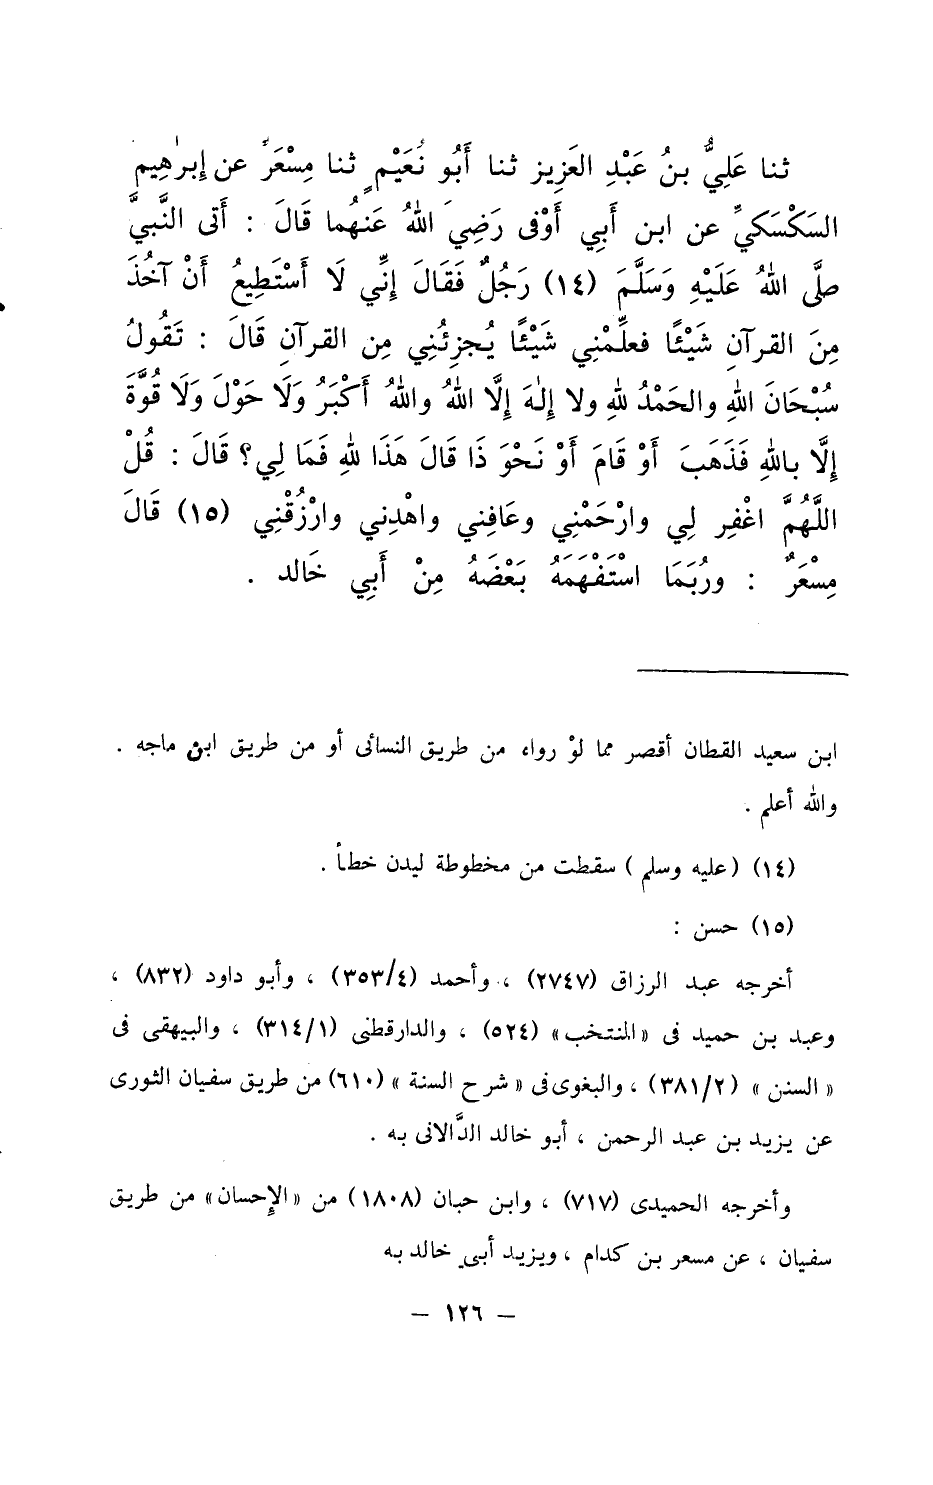 ثنا عَلِيُّ بنُ عَبْدِ العَزِيز ثنا أَبُو نُعَيْمٍ ثنا مِسْعَرٌ عن إِبرٰهِيم
السَكْسَكيِّ عن ابن أَبِي أَوْفى رَضِيَ اللهُ عَنهُما قَالَ : أَتى النَّبيَّ
صلَّى اللهُ عَلَيْهِ وَسَلَّمَ (١٤) رَجُلٌ فَقَالَ إِنِّي لَا أَسْتَطِيعُ أَنْ آخُذَ
مِنَ القرآنِ شَيْئًا فعلِّمْنِي شَيْئًا يُجزِئُنِي مِن القرآنِ قَالَ : تَقُولُ
سُبْحَانَ اللهِ والحَمْدُ للهِ ولا إِلٰهَ إِلَّا اللهُ واللهُ أَكْبَرُ وَلَا حَوْلَ وَلَا قُوَّةَ
إِلَّا باللهِ فَذَهَبَ أَوْ قَامَ أَوْ نَحْوَ ذَا قَالَ هَذَا للهِ فَمَا لِي؟ قَالَ : قُلْ
اللَّهُمَّ اغْفِر لِي وارْحَمْنِي وعَافِني واهْدِني وارْزُقْنِي (١٥) قَالَ
مِسْعَرٌ : ورُبَمَا اسْتَفْهَمَهُ بَعْضَهُ مِنْ أَبِي خَالد .
ابن سعيد القطان أقصر مما لوْ رواه من طريق النسائى أو من طريق ابن ماجه .
والله أعلم .
(١٤) (عليه وسلم ) سقطت من مخطوطة ليدن خطأ .
(١٥) حسن :
أخرجه عبد الرزاق (٢٧٤٧) ، وأحمد (٣٥٣/٤) ، وأبو داود (٨٣٢) ،
وعبد بن حميد فى «المنتخب» (٥٢٤) ، والدارقطنى (٣١٤/١) ، والبيهقى فى
« السنن » (٣٨١/٢) ، والبغوى فى « شرح السنة » (٦١٠) من طريق سفيان الثورى
عن يزيد بن عبد الرحمن ، أبو خالد الدَّالانى به .
وأخرجه الحميدى (٧١٧) ، وابن حبان (١٨٠٨) من «الإحسان» من طريق
سفيان ، عن مسعر بن كدام ، ويزيد أبى خالد به
— ١٢٦ —